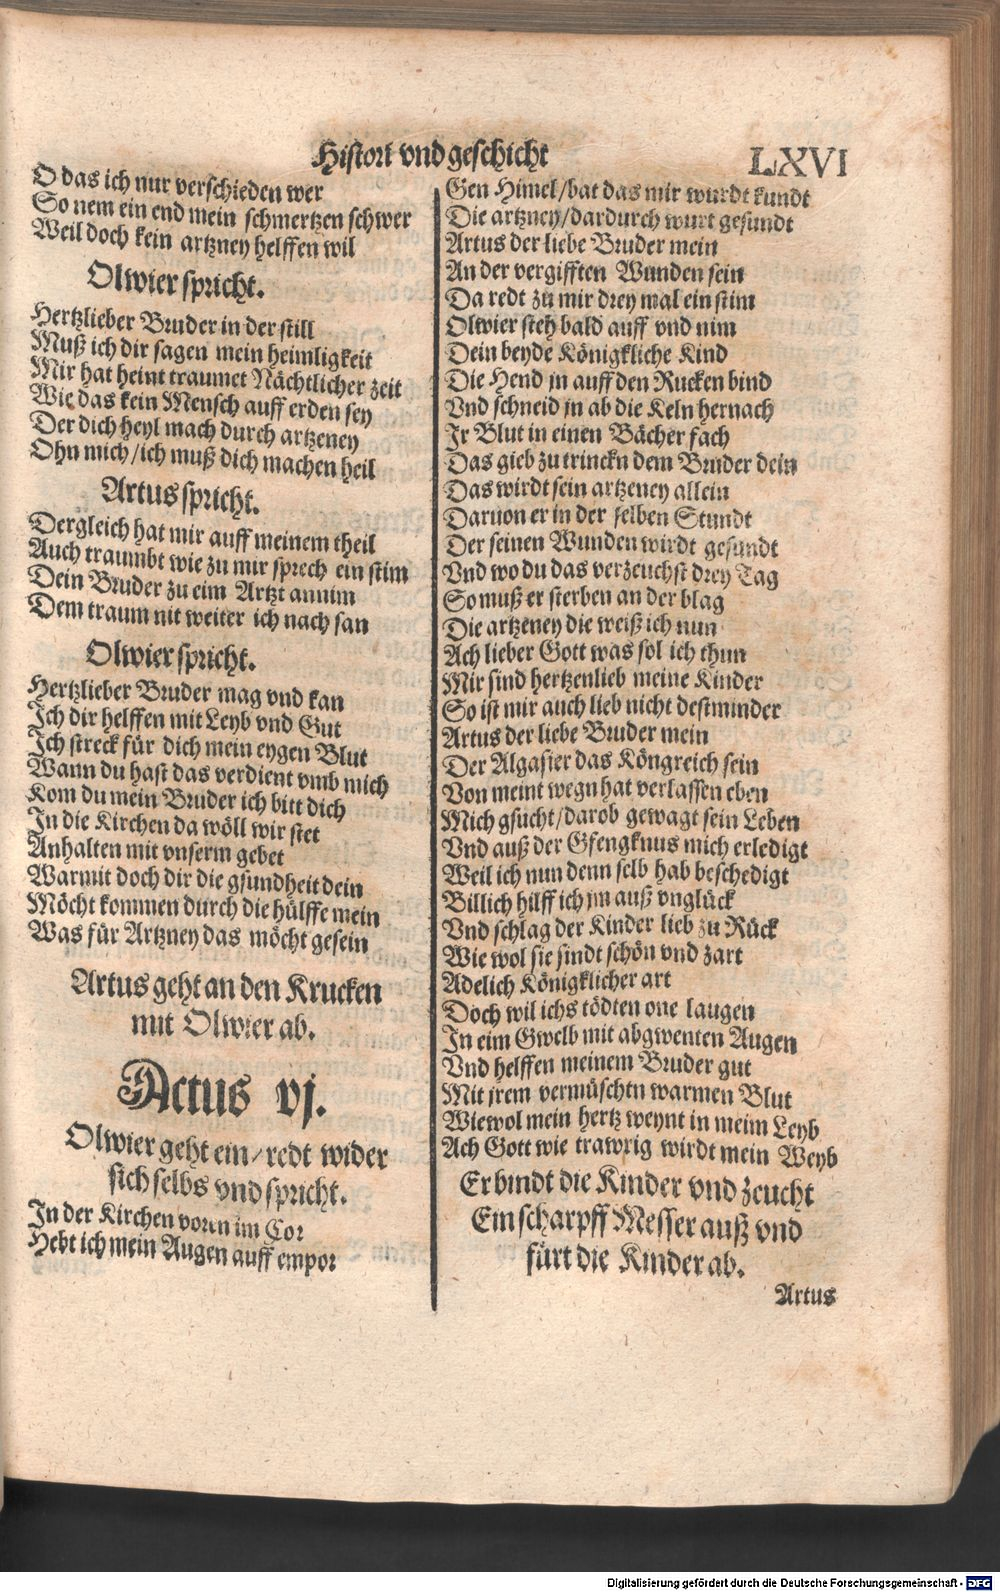 Histori vnd geschicht
LXVI
O das ich nur verschieden wer
So nem ein end mein schmertzen schwer
Weil doch kein artzney helffen wil
Olwier spricht.
Hertzlieber Bruder in der still
Muß ich dir sagen mein heimligkeit
Mir hat heint traumet Nächtlicher zeit
Wie das kein Mensch auff erden sey
Der dich heyl mach durch artzeney
Ohn mich/ich muß dich machen heil
Artus spricht.
Dergleich hat mir auff meinem theil
Auch traumbt wie zu mir sprech ein stim
Dein Bruder zu eim Artzt annim
Dem traum nit weiter ich nach san
Olwier spricht.
Hertzlieber Bruder mag vnd kan
Ich dir helffen mit Leyb vnd Gut
Ich streck für dich mein eygen Blut
Wann du hast das verdient vmb mich
Kom du mein Bruder ich bitt dich
In die Kirchen da wöll wir stet
Anhalten mit vnserm gebet
Warmit doch dir die gsundheit dein
Möcht kommen durch die hülffe mein
Was für Artzney das möcht gesein
Artus geht an den Krucken
mit Olwier ab.
Actus vj.
Olwier geht ein/redt wider
sich selbs vnd spricht.
In der Kirchen vorn im Cor
Hebt ich mein Augen auff empor
Gen Himel/bat das mir wurdt kundt
Die artzney/dardurch wurt gesundt
Artus der liebe Bruder mein
An der vergifften Wunden sein
Da redt zu mir drey mal ein stim
Olwier steh bald auff vnd nim
Dein beyde Königkliche Kind
Die Hend jn auff den Rucken bind
Vnd schneid jn ab die Keln hernach
Jr Blut in einen Bächer fach
Das gieb zu trinckn dem Bruder dein
Das wirdt sein artzeney allein
Daruon er in der selben Stundt
Der seinen Wunden wirdt gesundt
Vnd wo du das verzeuchst drey Tag
So muß er sterben an der blag
Die artzeney die weiß ich nun
Ach lieber Gott was sol ich thun
Mir sind hertzenlieb meine Kinder
So ist mir auch lieb nicht destminder
Artus der liebe Bruder mein
Der Algasier das Köngreich sein
Von meint wegn hat verlassen eben
Mich gsucht/darob gewagt sein Leben
Vnd auß der Gfengknus mich erledigt
Weil ich nun denn selb hab beschedigt
Billich hilff ich jm auß vnglück
Vnd schlag der Kinder lieb zu Rück
Wie wol sie sindt schön vnd zart
Adelich Königklicher art
Doch wil ichs tödten one laugen
In eim Gwelb mit abgwenten Augen
Vnd helffen meinem Bruder gut
Mit jrem vermüschtn warmen Blut
Wiewol mein hertz weynt in meim Leyb
Ach Gott wie trawrig wirdt mein Weyb
Er bindt die Kinder vnd zeucht
Ein scharpff Messer auß vnd
fürt die Kinder ab.
Artus
Digitalisierung gefördert durch die Deutsche Forschungsgemeinschaft - DFG